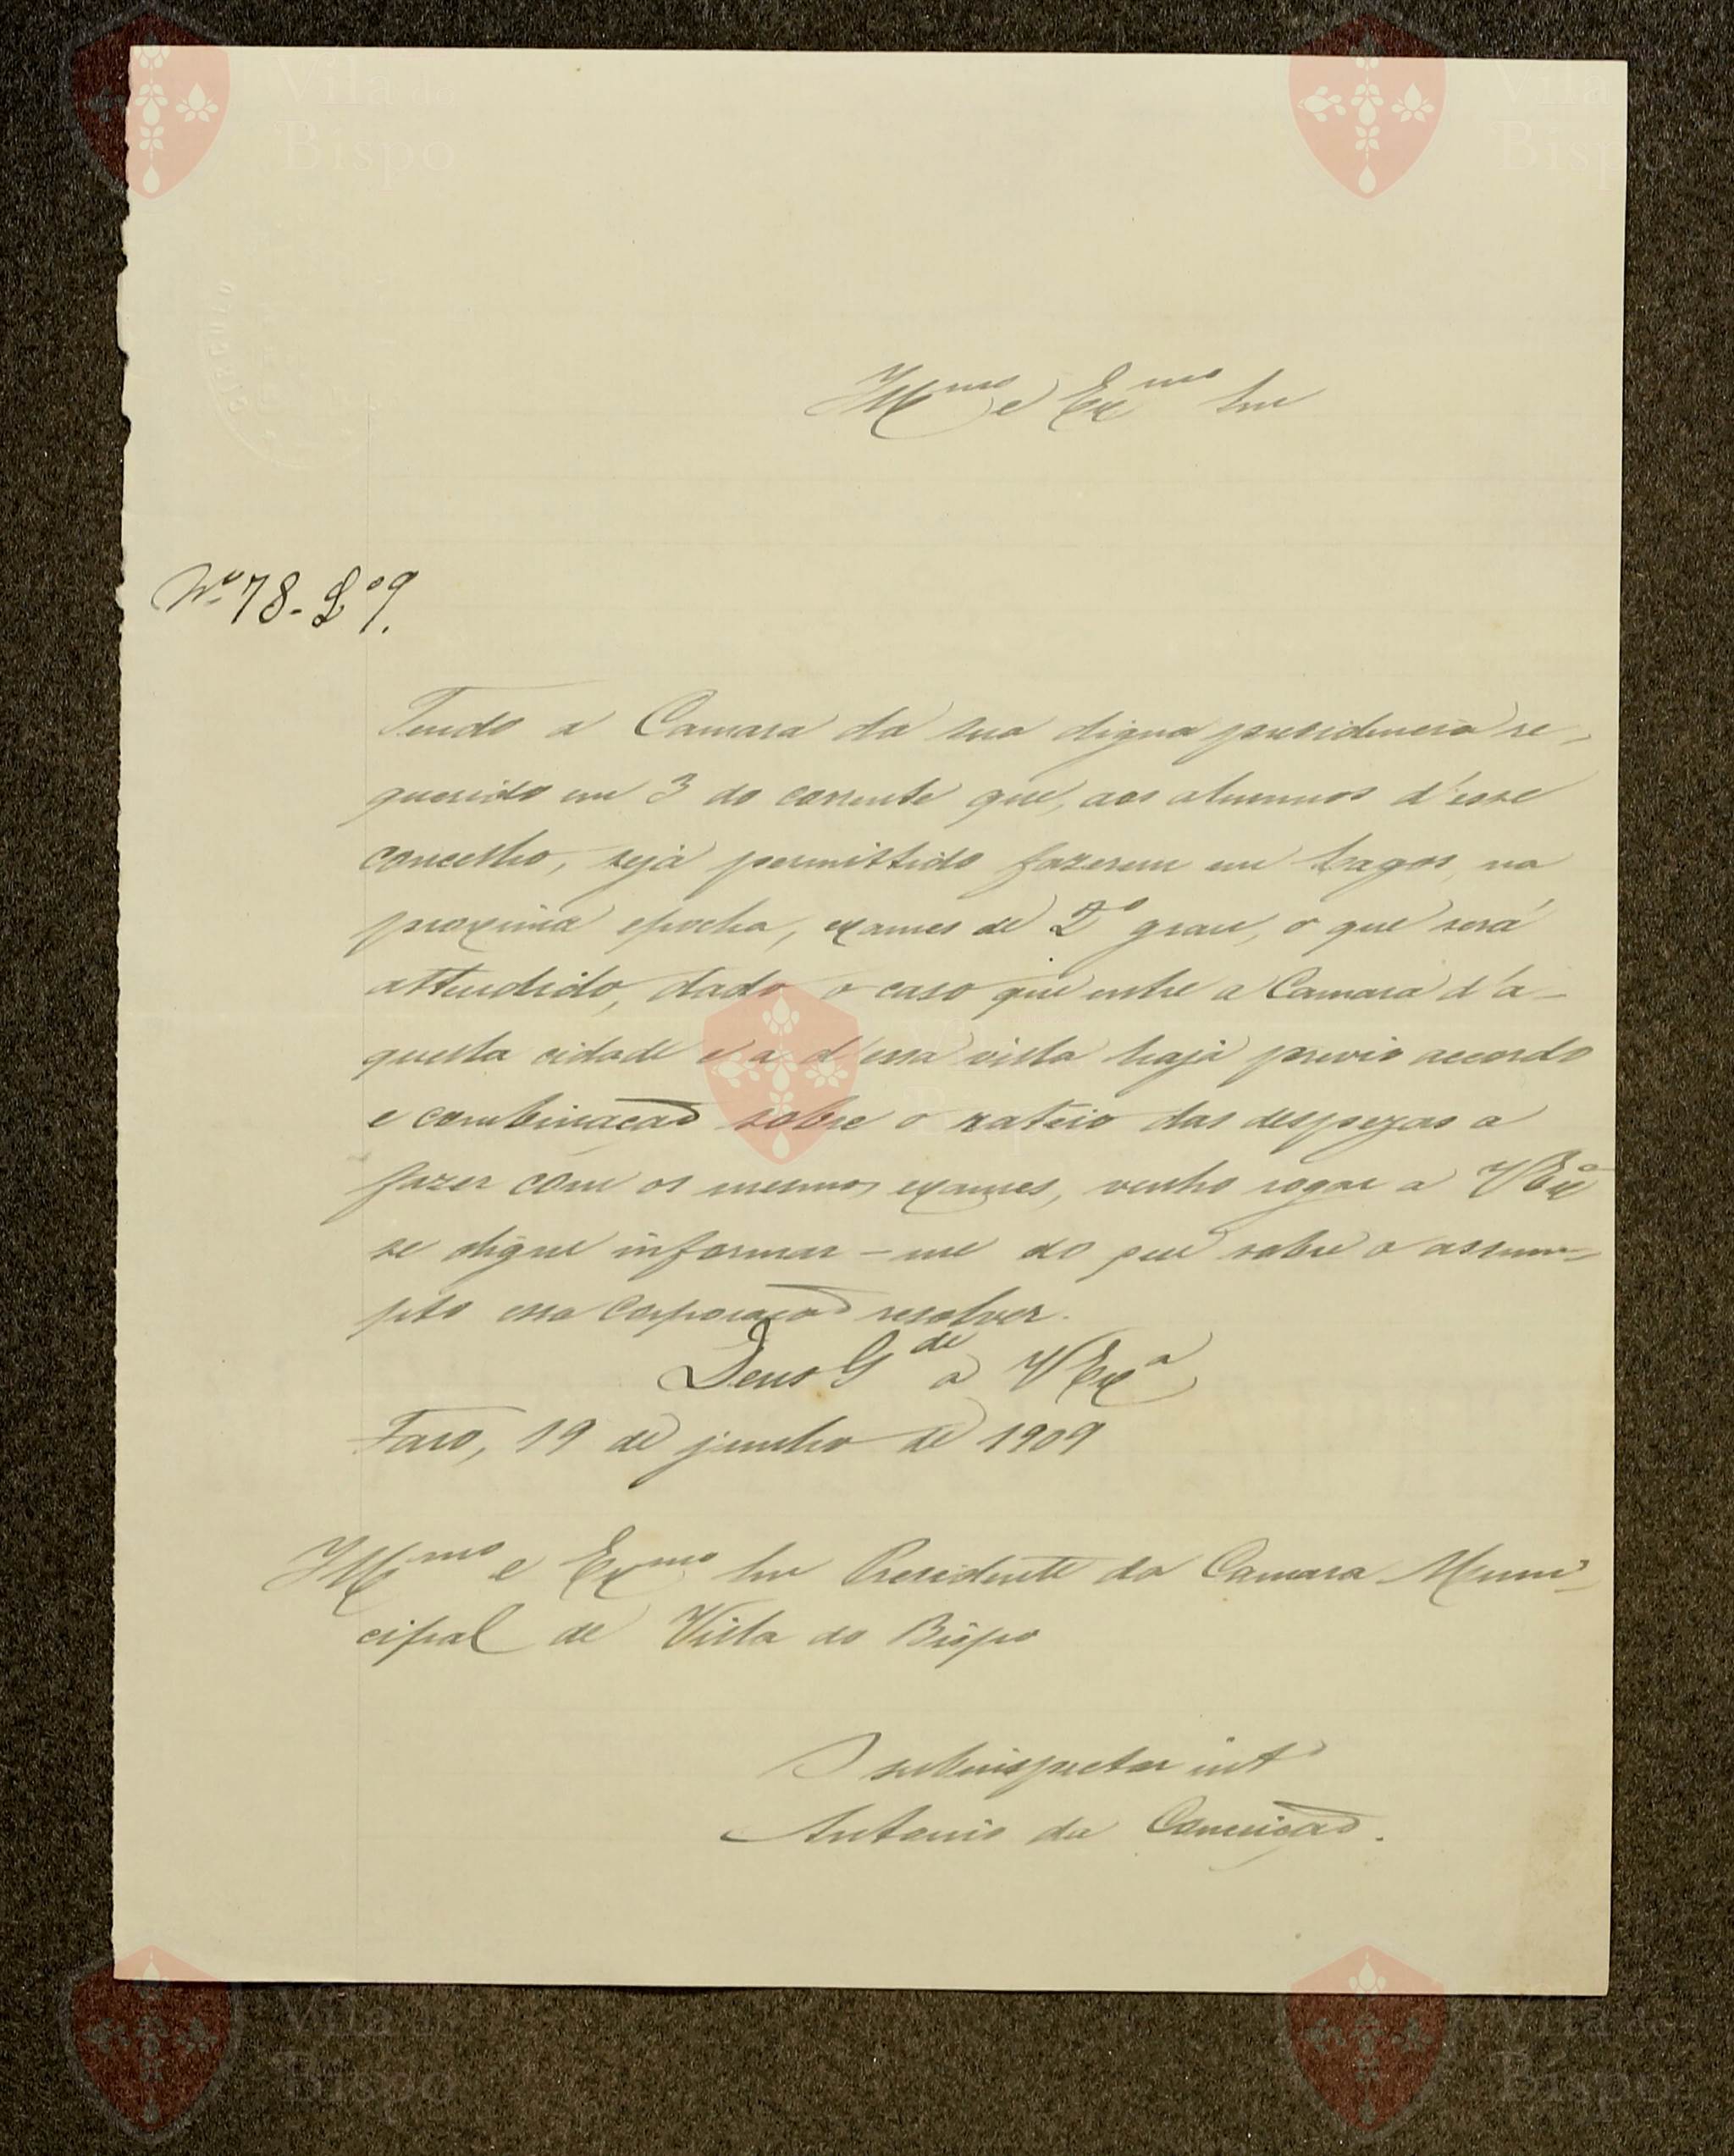 Vila do
Bispo
Vila
Bispo
Illmo e Exmo Snr
Nº 78 - Lº 9.
Tendo a Camara da sua digna presidencia re-
querido em 3 do corrente que, aos alumnos d'esse
concelho, seja permittido fazerem em Lagos, na
proxima epocha, exames de 2º grau, o que será
attendido, dado o caso que entre a Camara d'a-
quella cidade e a d'essa villa haja previo accordo
e combinação sobre o rateio das despezas a
fazer com os mesmos exames, venho rogar a V Exª
se digne informar-me do que sobre o assum-
pto essa corporação resolver.
Deus Gde a V Exª
Faro, 19 de junho de 1909
Illmo e Exmo Snr Presidente da Camara Muni-
cipal de Villa do Bispo
O subinspector intº
Antonio da Conceição.
Vila do
Bispo
Vila do
Bispo